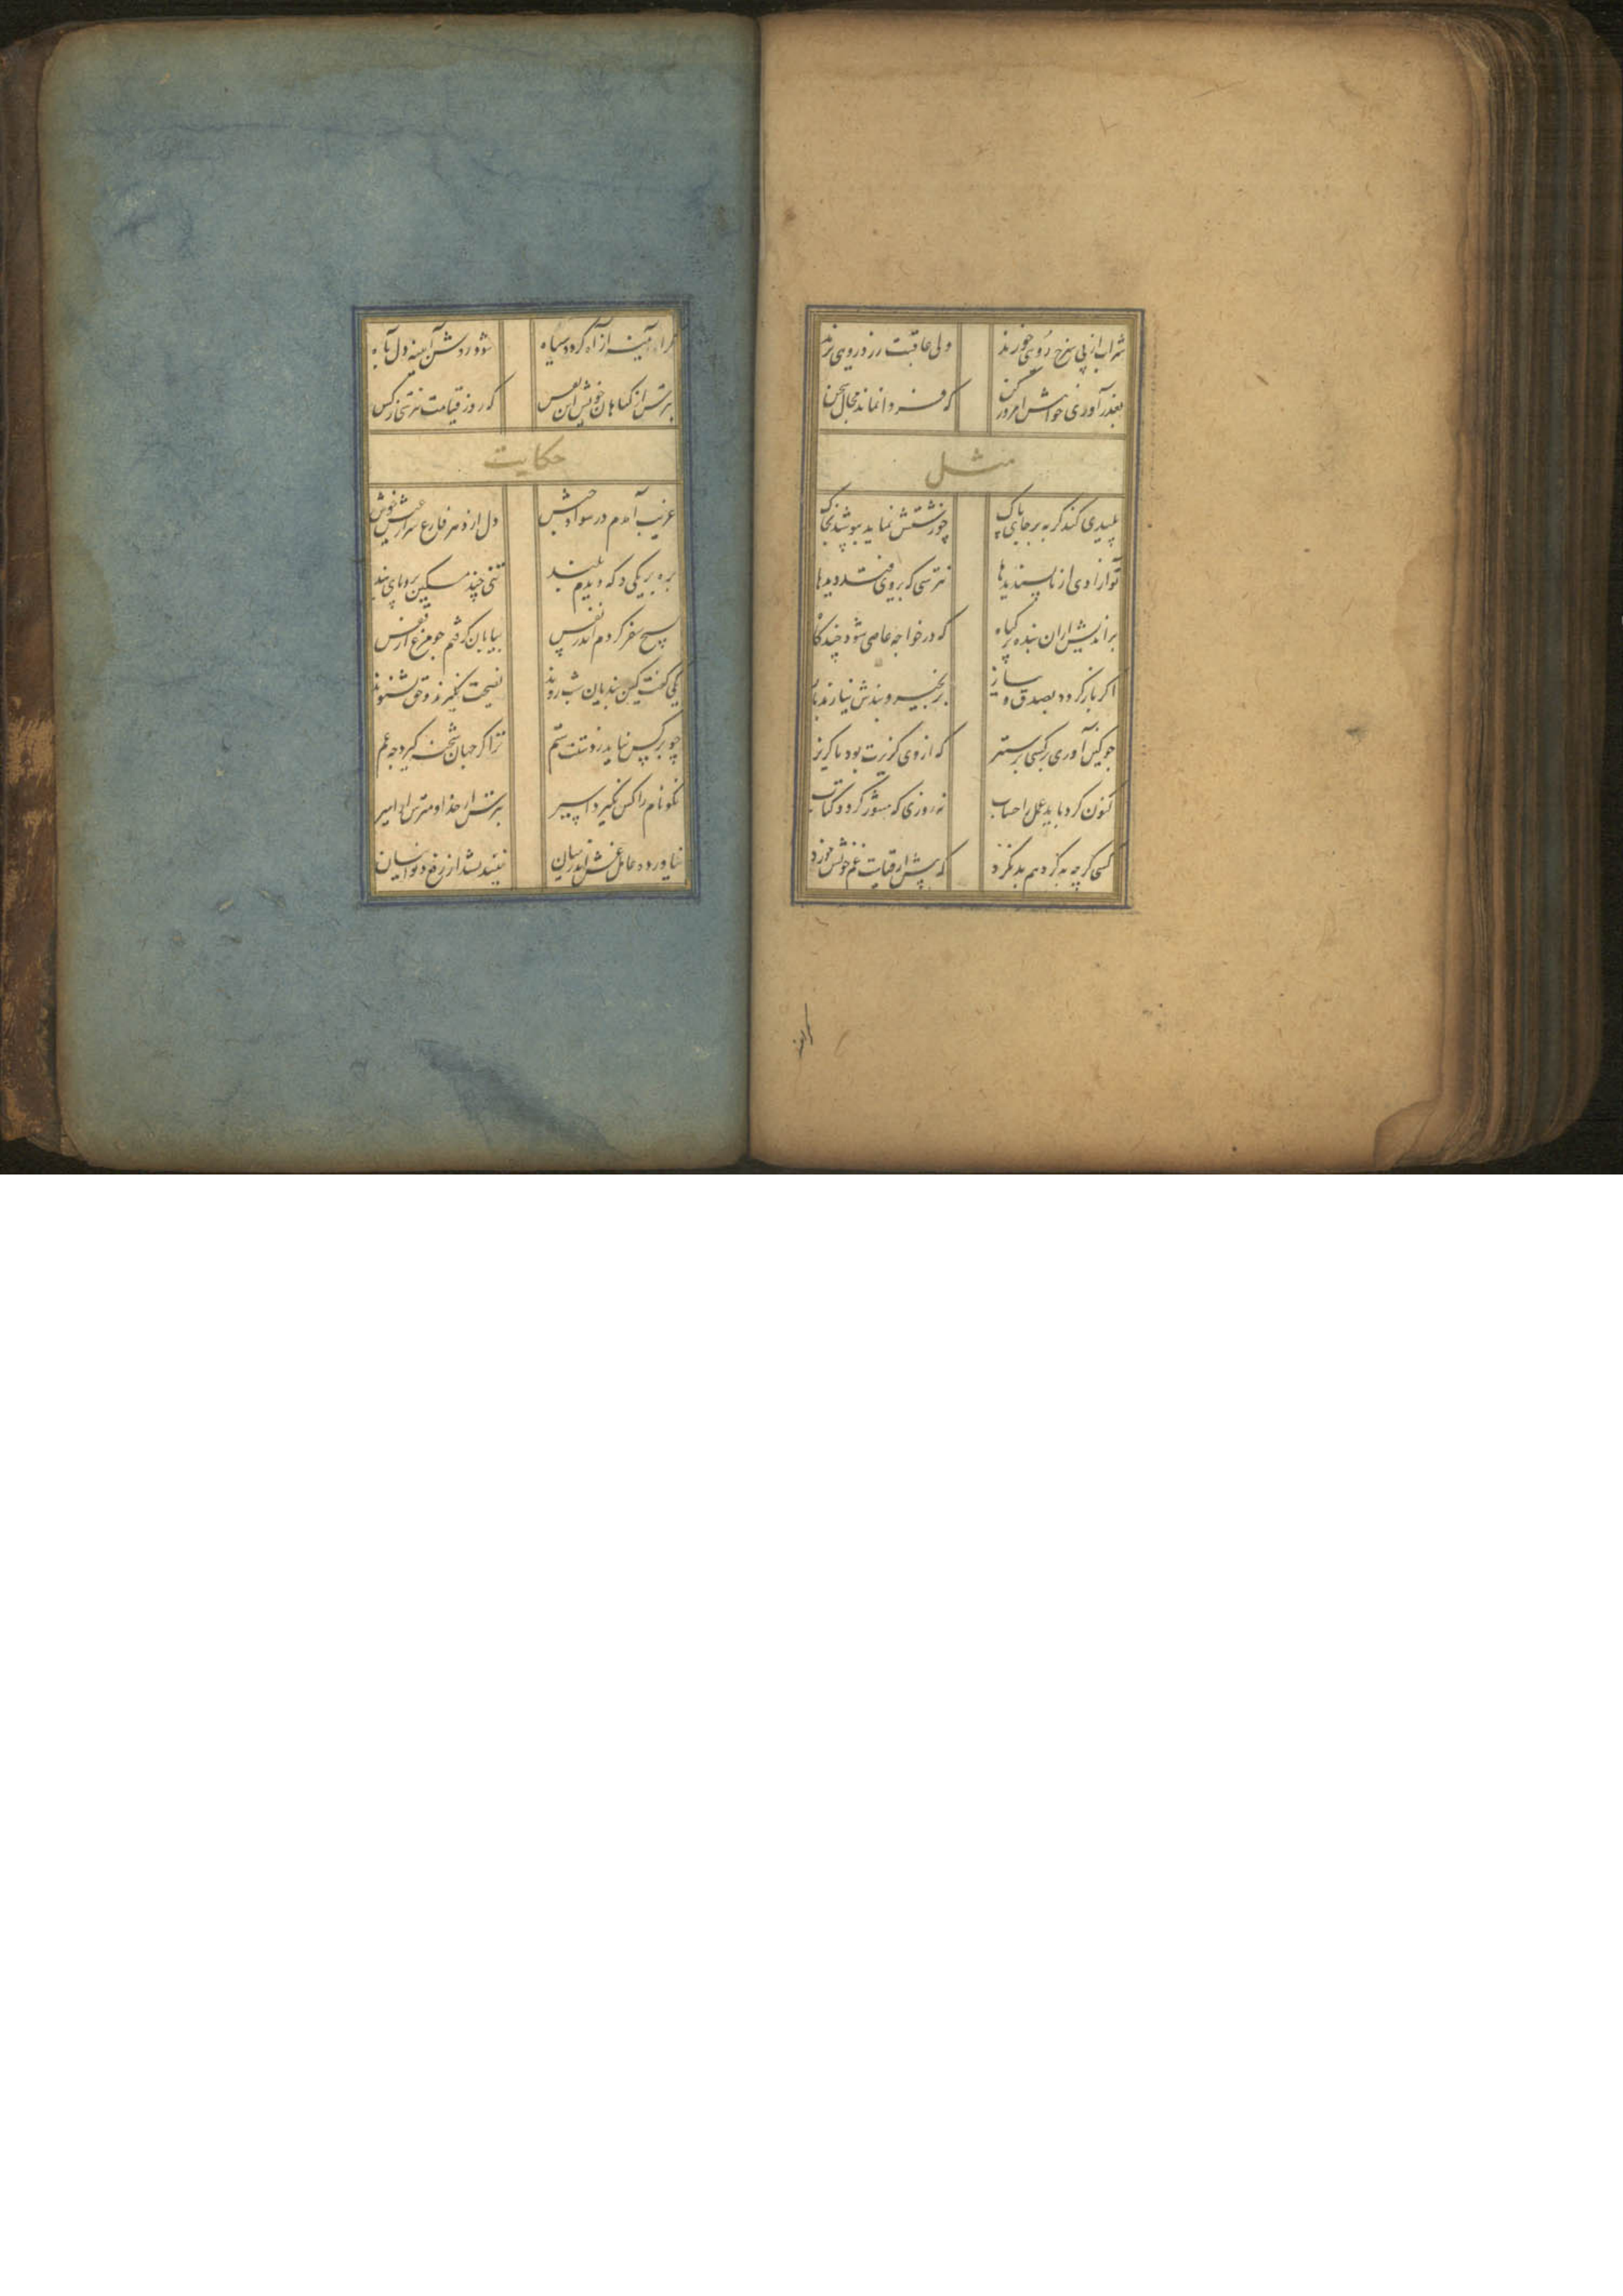 شراب از پی سرخ رویی خورند ولی عاقبت زرد رویی برند
بعذر آوری خواهش امروز کن که فردا نماند مجال سخن
مثل
پلیدی کند گربه بر جای پاک چو زشتش نماید بپوشد بخاک
تو آزادی از ناپسندیدها نترسی که بر وی فتد دیدها
براندیش از آن بنده پر گناه که در خواجه عاصی شود چندگاه
اگر باز گردد بصدق و نیاز بزنجیر و بندش نیارند باز
بکین آوری بر کسی بر ستیز که از وی گزیرت بود یا گریز
کنون کرد باید عمل را حساب نه روزی که منشور گردد کتاب
کسی گرچه بد کرد هم بد نکرد که پیش از قیامت غم خویش خورد
گر آیینه
گر آیینه از آه گردد سیاه شود روشن آیینه دل بآه
بترس از گناهان خویش این نفس که روز قیامت نترسی ز کس
حکایت
غریب آمدم در سواد حبش دل از دهر فارغ سر از عیش خوش
بره بر یکی دکه دیدم بلند تنی چند مسکین برو پای بند
بسیج سفر کردم اندر نفس بیابان گرفتم چو مرغ از قفس
یکی گفت کین بندیان شب روند نصیحت نگیرند و حق نشنوند
چو بر کس نیاید ز دستت ستم ترا گر جهان شحنه گیرد چه غم
نکو نام را کس نگیرد اسیر بترس از خدا و مترس از امیر
نیاورده عامل غش اندر میان نیندیشد از رفع دیوانیان